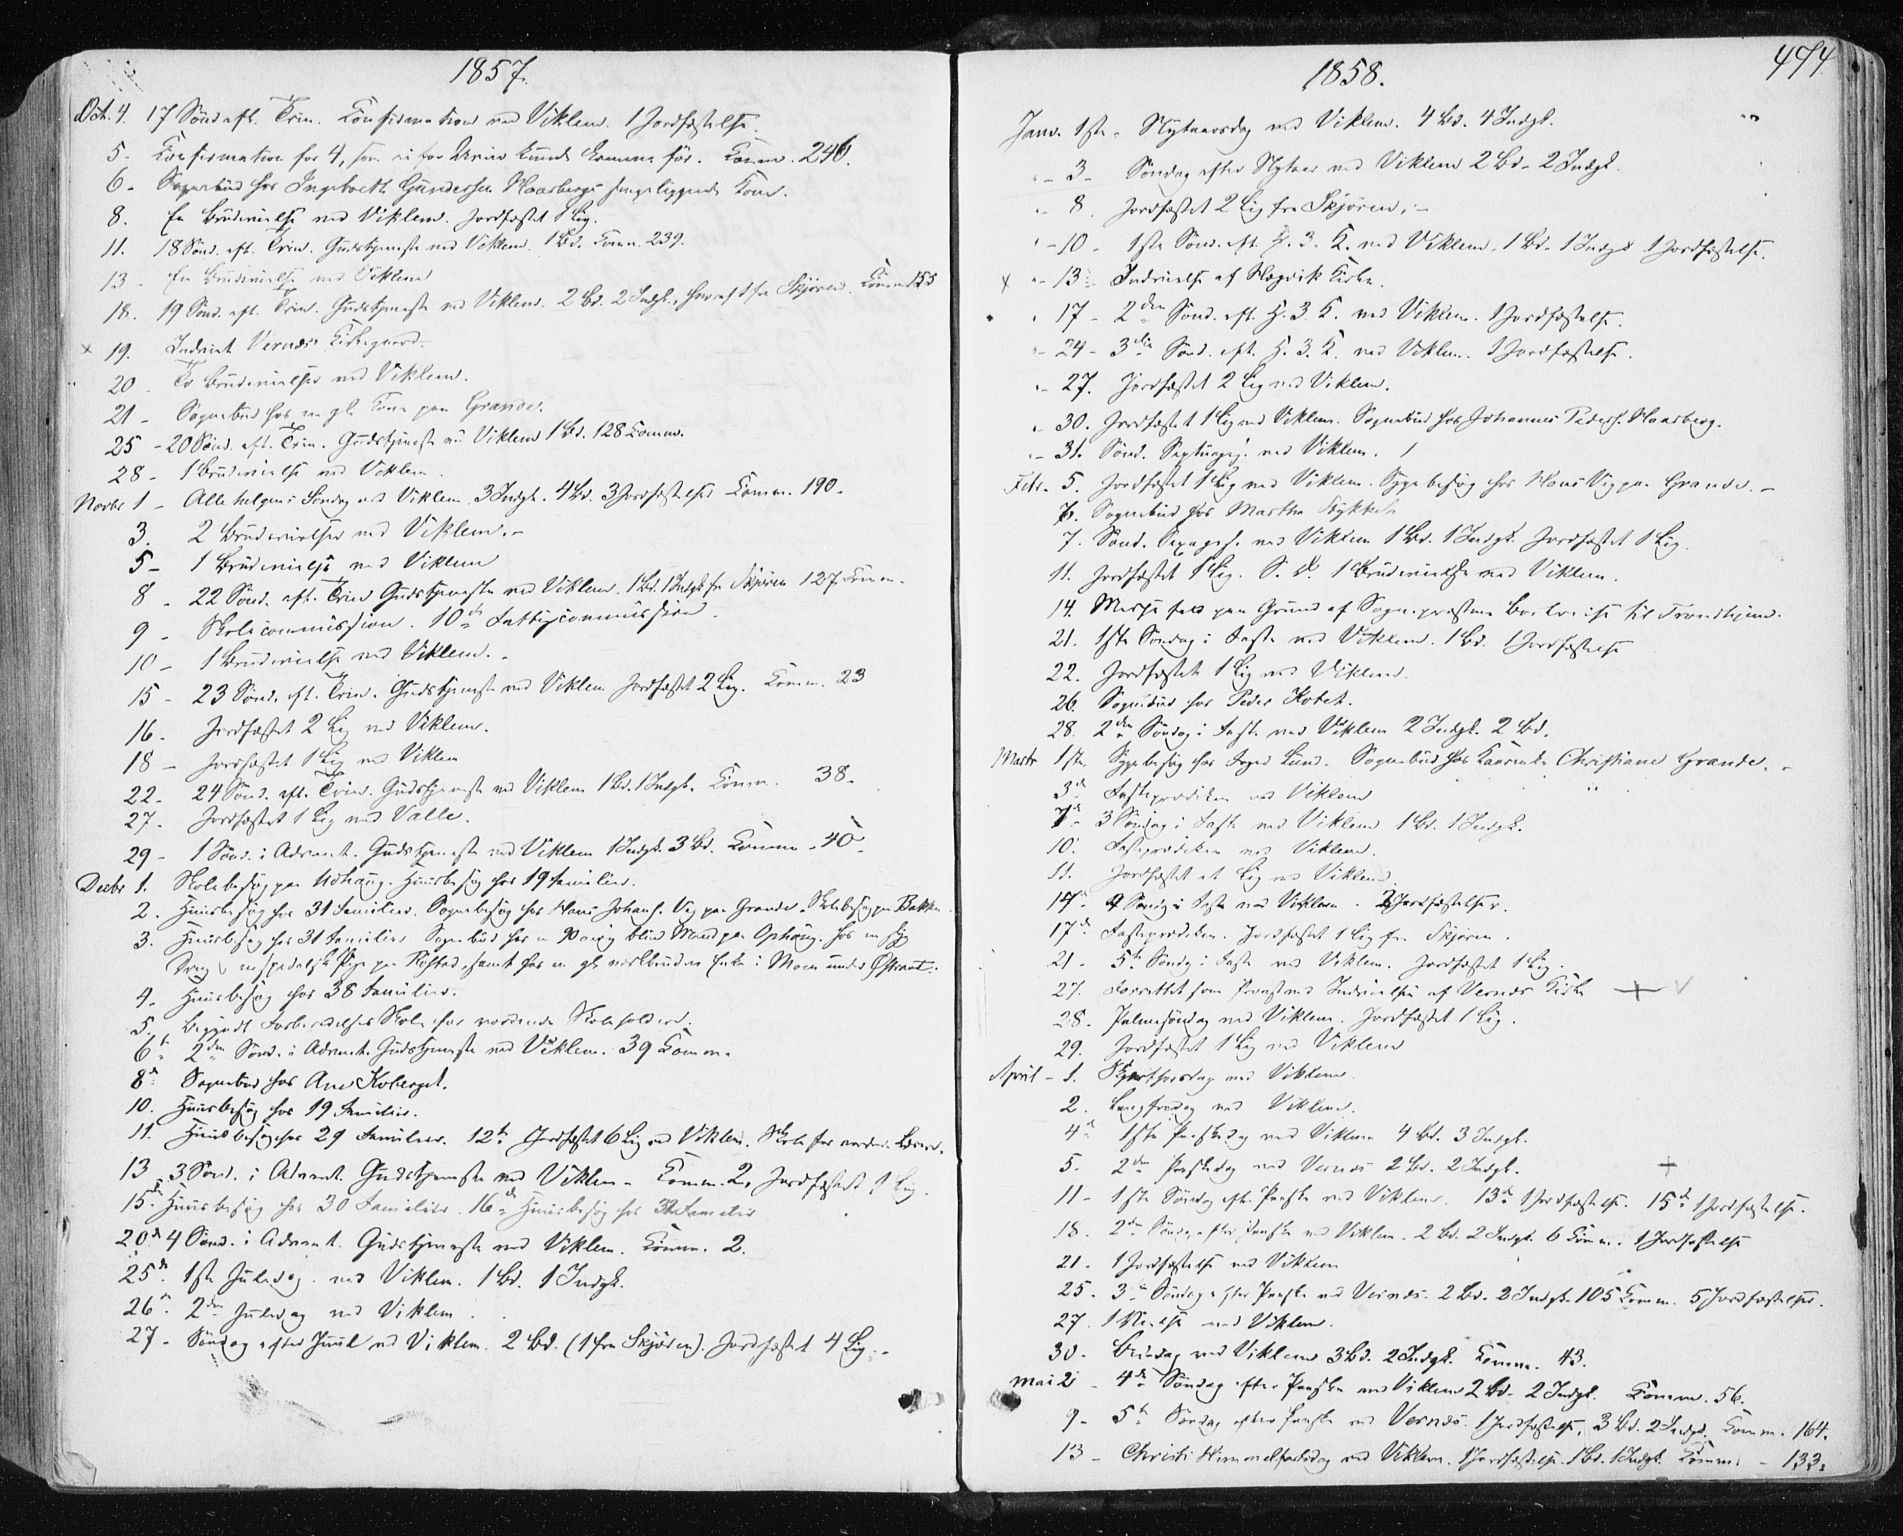 1857.
Oct. 4. 17 Sønd. eft. Trin. Confirmation ved Viklem. 1 Jordfæstelse.
5. Confirmation for 4, som ei før kunde komme før. Comm. 246.
6. Sognebud hos Ingeborth Gundersen Haarbergs sengeliggende Kone.
8. En Brudevielse ved Viklem. Jordfæstet 1 Lig.
11. 18 Sønd. eft. Trin. Gudstjeneste ved Viklem. 1 Bd. Comm. 239.
13 - En Brudevielse ved Viklem
18. 19 Sønd. eft. Trin. Gudstjeneste ved Viklem. 2 Bd. 2 Indgk., hvoraf 1 fra Skjøren. Comm 155
x 19. Indviet Vernæs Kirkegaard.
20. To Brudevielser ved Viklem.
21 - Sognebud hos en gl. Kone paa Grande.
25 - 20 Sønd. eft. Trin. Gudstjeneste ved Viklem 1 Bd. 128 Comm.
28 - 1 Brudevielse ved Viklem.
Novbr 1 - Alle helgens Søndag ved Viklem 3 Indgk. 4 Bd. 3 Jordfæstelser Comm. 190.
3. 2 Brudevielser ved Viklem. -
5 - 1 Brudevielse ved Viklem
8 - 22 Sønd. eft. Trin Gudstjeneste ved Viklem. 1 Bd. 1 Indgk fra Skjøren 127 Comm.
9 - Skolecommission. 10de Fattigcommission.
10 - 1 Brudevielse ved Viklem. -
15 - 23 Sønd. eft. Trin. Gudstjeneste ved Viklem Jordfæstet 2 Lig. Comm. 23
16. Jordfæstet 2 Lig ved Viklem.
18 - Jordfæstet 1 Lig ved Viklem
22. 24 Sønd. eft. Trin. Gudstjeneste ved Viklem 1 Bd. 1 Indgk. Comm. 38.
27. Jordfæstet 1 Lig ved Valle.
29 - 1 Sønd. i Advent. Gudstjeneste ved Viklem 1 Indgk. 3 Bd. Comm - 40.
Decbr 1. Skolebesøg paa Udhaug. Huusbesøg hos 19 Familier.
2. Huusbesøg hos 31 Familier. Sognebesøg hos Hans Johans. Vig paa Grande. Skolebesøg paa Bakken.
3. Huusbesøg hos 31 Familier Sognebud hos en 90 aarig blind Mand paa Ophaug. hos en syg
Dreng, en spedalsk Pige paa samt hos en gl. Enke i Moen under Østraat.
4. Huusbesøg hos 38 Familier.
5. Begyndt Forberedelses Skole for vordende Skoleholdere.
6te 2den Sønd. i Advent. Gudstjeneste ved Viklem. 39 Comm.
8de Sognebud hos Ane Koberget.
10. Huusbesøg hos 19 Familier.
11. Huusbesøg hos 29 Familier. 12te Jordfæstet 6 Lig ved Viklem. Skole for vorden. Lærere.
13 3 Sønd. i Advent. Gudstjeneste ved Viklem - Comm. 2, Jordfæstet 1 Lig.
15de Huusbesøg hos 30 Familier. 16de Huusbesøg hos 32 Familier
20de 4 Sønd. i Advent. Gudstjeneste ved Viklem. Comm. 2.
25de 1ste Juledag. ved Viklem. 1 Bd. 1 Indgk.
26de 2den Juledag ved Viklem.
27 - Søndag efter Juul ved Viklem. 2 Bd. (1 fra Skjøren). Jordfæstet 4 Lig. -
1858.
474.
Janr. 1ste - Nytaarsdag ved Viklem. 4 Bd. 4 Indgk.
- 3 - Søndag efter Nytaar ved Viklem 2 Bd. 2 Indgk.
- 8. Jordfæstet 2 Lig fra Skjøren. -
- 10 - 1ste Sønd. eft. H. 3. K. ved Viklem. 1 Bd. 1 Indgk 1 Jordfæstelse.
x - 13 - Indvielse af Hægvik Kirke.
17 - 2den Sønd. eft. H. 3. K. ved Viklem. 1 Jordfæstelse.
- 24 - 3die Sønd. eft. H. 3. K. ved Viklem. 1 Jordfæstelse.
- 27. Jordfæstet 2 Lig ved Viklem.
- 30. Jordfæstet 1 Lig ved Viklem. Sognebud hos Johannes Peders. Haarberg.
- 31. Sønd. Septuag. ved Viklem. 1
Febr. 5. Jordfæstet 1 Lig ved Viklem. Sygebesøg hos Hans Vig paa Grande. -
6. Sognebud hos Martha Stykket
7. Sønd. Sexages. ved Viklem 1 Bd. 1 Indgk. Jordfæstet 1 Lig.
11. Jordfæstet 1 Lig. S. D. 1 Brudevielse ved Viklem.
14. Messefald paa Grund af Sognepræstens Bortreise til Trondhjem.
21. 1ste Søndag i Faste ved Viklem. 1 Bd. 1 Jordfæstelse
22. Jordfæstet 1 Lig ved Viklem.
26. Sognebud hos Peder Hovet.
28. 2den Søndag i Faste ved Viklem 2 Indgk. 2 Bd.
Marts 1ste Sygebesøg hos Foged Lund. Sognebud hos Christiane Grande. -
3de Fasteprædiken ved Viklem
7de 3 Søndag i Faste ved Viklem 1 Bd. 1 Indgk.
10. Fasteprædiken ved Viklem.
11. Jordfæstet et Lig ved Viklem.
14. 4 Søndag i Faste ved Viklem. 2 Jordfæstelser.
17de Fasteprædiken. Jordfæstet 1 Lig fra Skjøren.
21 - 5te Søndag i Faste ved Viklem. Jordfæstet 1 Lig.
27. Forrettet som Provst ved Indvielsen af Vernæs Kirke + V
28. Palmesøndag ved Viklem. Jordfæstet 1 Lig.
29. Jordfæstet 1 Lig ved Viklem
April - 1. Skjærthorsdag ved Viklem.
2. Langfredag ved Viklem.
4de 1ste Paaskedag ved Viklem 4 Bd. 3 Indgk.
5. 2den Paaskedag ved Vernæs 2 Bd. 2 Indgk. +
11 - 1ste Søndag eft. Paaske ved Viklem. 13de 1 Jordfæstelse. 15de 1 Jordfæstelse.
18. 2den Søndag efter Paaske ved Viklem. 2 Bd. 2 Indgk. 6 Comm. 1 Jordfæstelse
21 - 1 Jordfæstelse ved Viklem
25. 3die Søndag efter Paaske ved Vernæs. 2 Bd. 2 Indgk. 105 Comm. 5 Jordfæstelser.
27. 1 Vielse ved Viklem.
30. Bededag ved Viklem 3 Bd. 2 Indgk. Comm. 43.
Mai 2 - 4de Søndag efter Paaske ved Viklem 2 Bd. 2 Indgk. Comm. 56.
9 - 5te Søndag efter Paaske ved Vernæs. 1 Jordfæstelse, 3 Bd. 2 Indgk. Comm. 164.
13 - Christi Himmelfartsdag ved Viklem. 1 Jordfæstelse. 1 Bd. 1 Indgk. Comm. - 133.